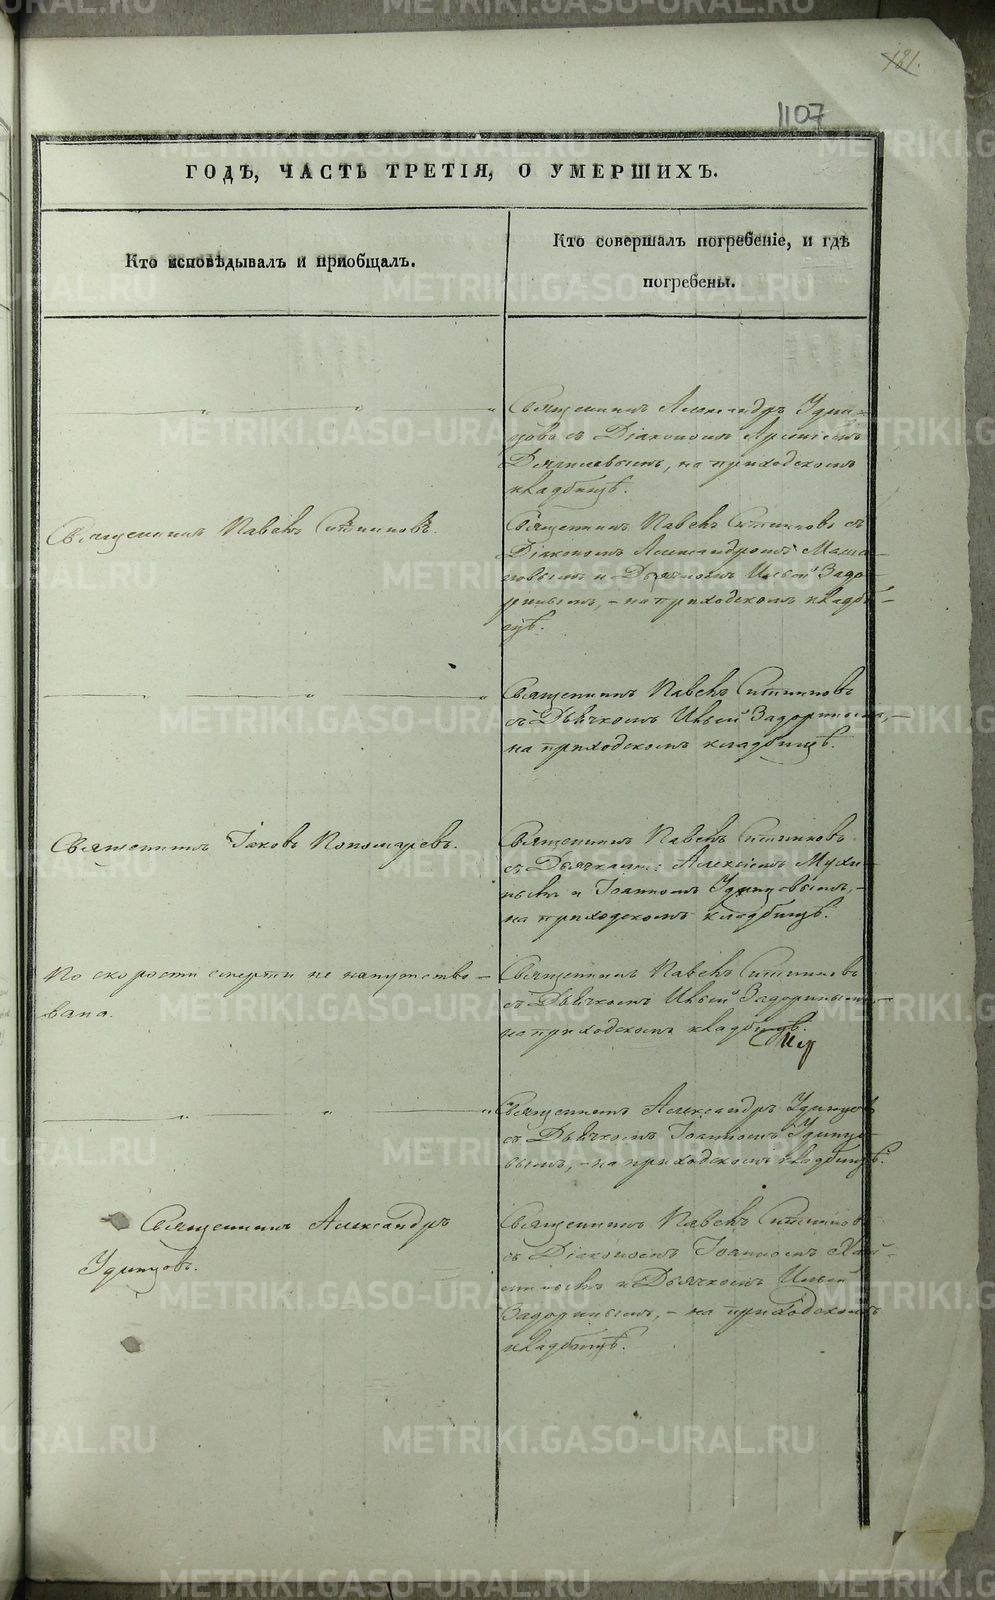 181.
1107
ГОДЪ, ЧАСТЬ ТРЕТІЯ, О УМЕРШИХЪ.
Кто исповѣдывалъ и пріобщалъ.
Кто совершалъ погребеніе, и гдѣ
погребены.
Священникъ Александръ Удин-
цовъ съ Діакономъ
на приходскомъ
кладбищѣ.
Священникъ Павелъ Ситниковъ.
Священникъ Павелъ Ситниковъ съ
Діакономъ Александромъ
и Дьячкомъ Ильей Задо-
ринымъ, - на приходскомъ кладби-
щѣ.
Священникъ Павелъ Ситниковъ
съ Дьячкомъ Ильей Задоринымъ, -
на приходскомъ кладбищѣ.
Священникъ Іаковъ Пономаревъ.
Священникъ Павелъ Ситниковъ
съ Дьячками: Алексѣемъ Мухи-
нымъ и Іоанномъ Удинцовымъ, -
на приходскомъ кладбищѣ.
По скорости смерти не напутство-
вана.
Священникъ Павелъ Ситниковъ
съ Дьячкомъ Ильей Задоринымъ -
на приходскомъ кладбищѣ.
Священникъ Александръ Удинцовъ
съ Дьячкомъ Іоанномъ Удинцо-
вымъ, - на приходскомъ кладбищѣ.
Священникъ Александръ
Удинцовъ.
Священникъ Павелъ Ситниковъ
съ Діакономъ Іоанномъ
и Дьячкомъ Ильей
Задоринымъ, - на приходскомъ
кладбищѣ.
METRIKI.GASO-URAL.RU